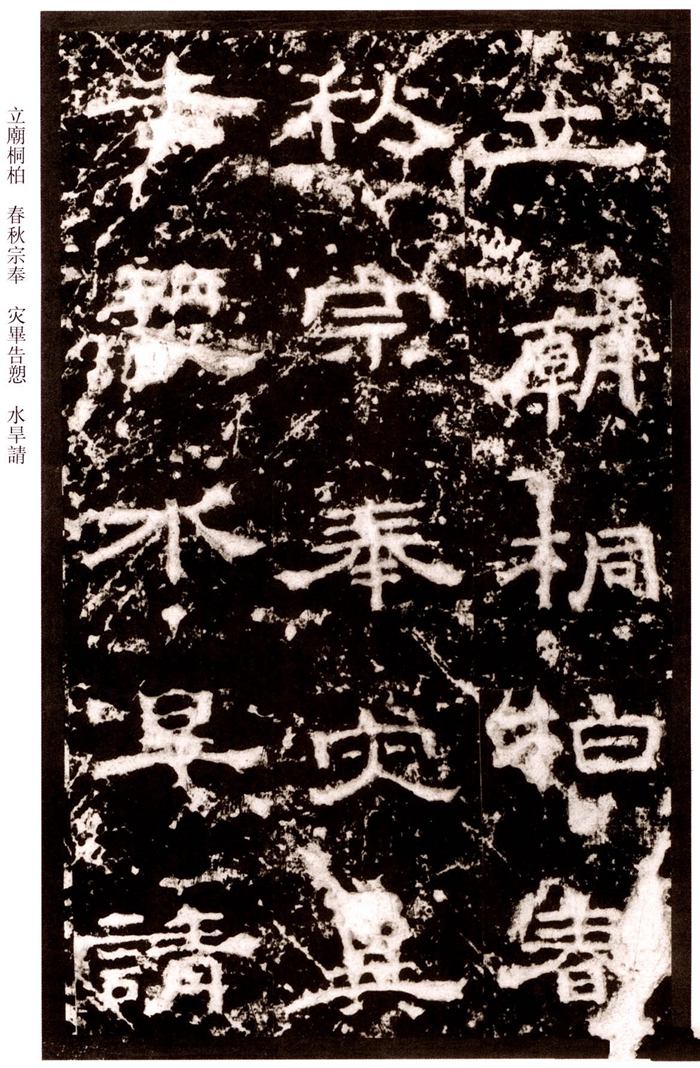 立廟桐柏春
秋宗奉灾異
告愬水旱請
立廟桐柏　春秋宗奉　灾畢告愬　水旱請